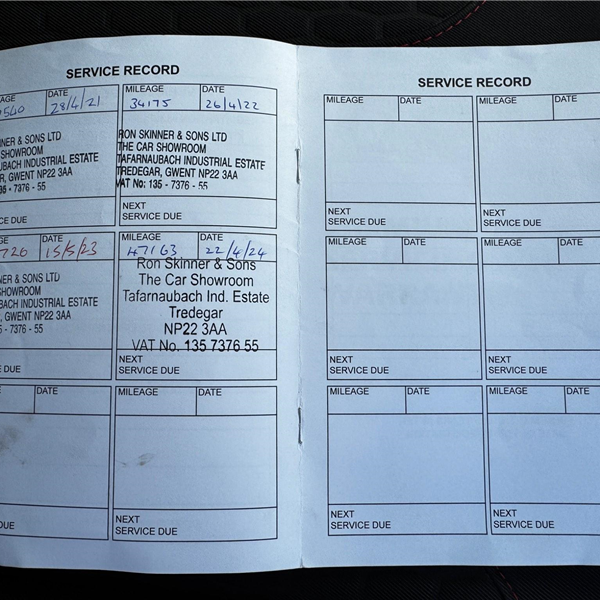 SERVICE RECORD
DATE
28/4/21
SKINNER & SONS LTD
SHOWROOM
INDUSTRIAL ESTATE
GWENT NP22 3AA
7376 - 55
DUE
MILEAGE DATE
34175 26/4/22
RON SKINNER & SONS LTD
THE CAR SHOWROOM
TAFARNAUBACH INDUSTRIAL ESTATE
TREDEGAR, GWENT NP22 3AA
VAT No: 135 - 7376 - 55
NEXT
SERVICE DUE
DATE
15/5/23
& SONS LTD
SHOWROOM
INDUSTRIAL ESTATE
GWENT NP22 3AA
7376 - 55
DUE
MILEAGE DATE
47163 22/4/24
Ron Skinner & Sons
The Car Showroom
Tafarnaubach Ind. Estate
Tredegar
NP22 3AA
VAT No. 135 7376 55
NEXT
SERVICE DUE
DATE
DUE
MILEAGE DATE
NEXT
SERVICE DUE
SERVICE RECORD
MILEAGE DATE
NEXT
SERVICE DUE
MILEAGE DATE
NEXT
SERVICE DUE
MILEAGE DATE
NEXT
SERVICE DUE
MILEAGE DATE
NEXT
SERVICE DUE
MILEAGE DATE
NEXT
SERVICE DUE
MILEAGE DATE
NEXT
SERVICE DUE